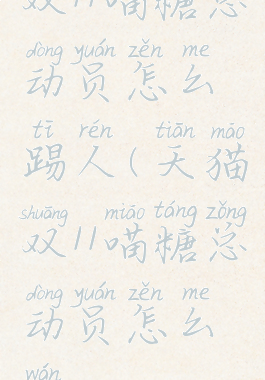 双11喵糖总
dòng yuán zěn me
动员怎么
tī rén tiān māo
踢人(天猫
shuāng miāo táng zǒng
双11喵糖总
dòng yuán zěn me
动员怎么
wán